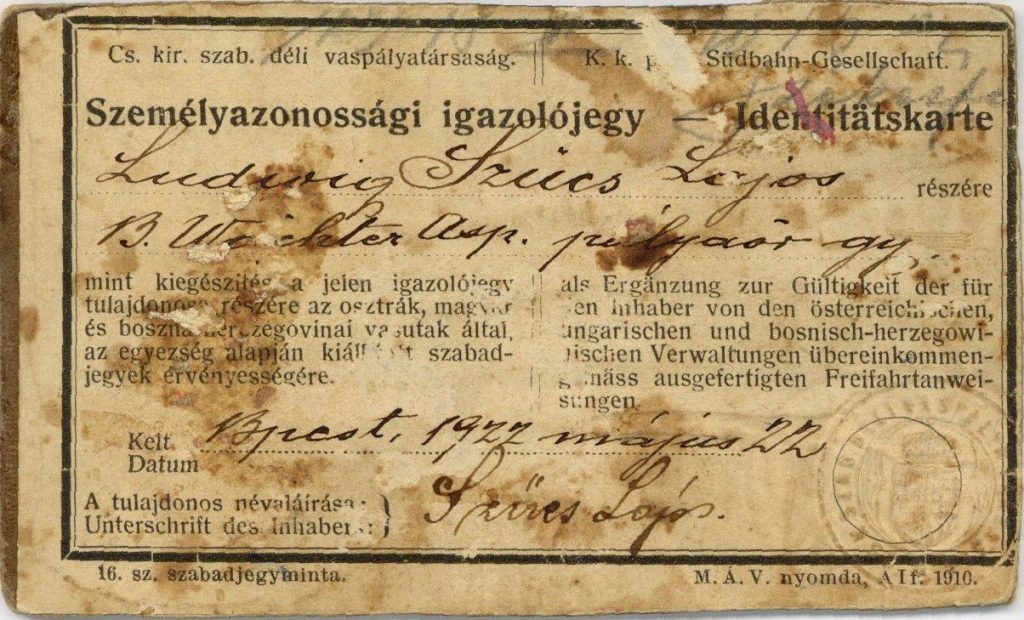 Cs. kir. szab. déli vaspályatársaság.
K. k. p Südbahn-Gesellschaft.
Személyazonossági igazolójegy — Identitätskarte
Ludwig Szücs Lajos részére
B. Wächter Asp. pályaőr gy.
mint kiegészítés a jelen igazolójegy
tulajdonosa részére az osztrák, magyar
és bosznia-herczegovinai vasutak által,
az egyezség alapján kiállított szabad-
jegyek érvényességére.
als Ergänzung zur Gültigkeit der für
den Inhaber von den österreichischen,
ungarischen und bosnisch-herzegowi-
nischen Verwaltungen übereinkommen-
gemäss ausgefertigten Freifahrtanwei-
sungen.
Kelt Bpest, 1922 május 22
Datum
A tulajdonos névaláírása:
Unterschrift des Inhabers:
Szücs Lajos.
16. sz. szabadjegyminta.
M. Á. V. nyomda, A If. 1910.